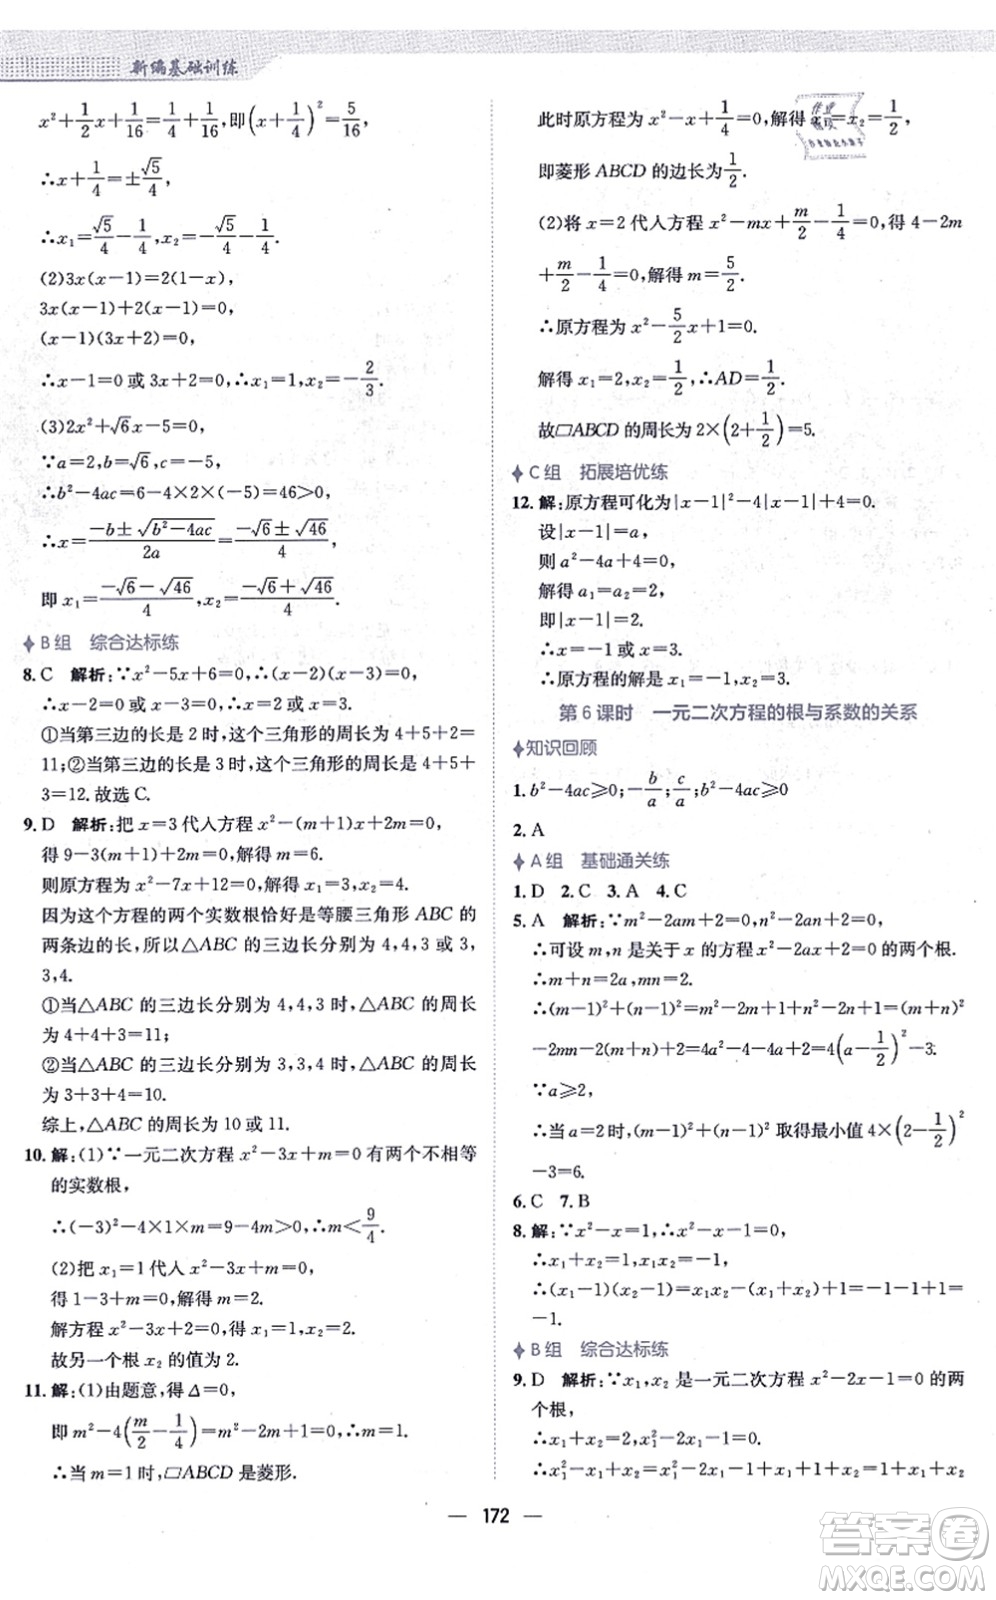 新编基础训练
x²+1/2x+1/16=1/4+1/16,即(x+1/4)²=5/16,
∴x+1/4=±√5/4,
∴x₁=√5/4-1/4,x₂=-√5/4-1/4.
(2)3x(x-1)=2(1-x),
3x(x-1)+2(x-1)=0,
(x-1)(3x+2)=0,
∴x-1=0 或 3x+2=0,∴x₁=1,x₂=-2/3.
(3)2x²+√6x-5=0,
∵a=2,b=√6,c=-5,
∴b²-4ac=6-4×2×(-5)=46>0,
∴x=(-b±√(b²-4ac))/2a=(-√6±√46)/4,
即 x₁=(-√6-√46)/4,x₂=(-√6+√46)/4.
B组 综合达标练
8. C 解析:∵x²-5x+6=0,∴(x-2)(x-3)=0,
∴x-2=0 或 x-3=0,∴x=2 或 x=3.
①当第三边的长是 2 时,这个三角形的周长 4+5+2=
11;②当第三边的长是 3 时,这个三角形的周长 4+5+
3=12.故选 C.
9. D 解析:把 x=3 代人方程 x²-(m+1)x+2m=0,
得 9-3(m+1)+2m=0,解得 m=6.
则原方程为 x²-7x+12=0,解得 x₁=3,x₂=4.
因为这个方程的两个实数根恰好是等腰三角形 ABC 的
两条边的长,所以△ABC 的三边长分别为 4,4,3 或 3,
3,4.
①当△ABC 的三边长分别为 4,4,3 时,△ABC 的周长
为 4+4+3=11;
②当△ABC 的三边长分别为 3,3,4 时,△ABC 的周长
为 3+3+4=10.
综上,△ABC 的周长为 10 或 11.
10. 解:(1)∵一元二次方程 x²-3x+m=0 有两个不相等
的实数根,
∴(-3)²-4×1×m=9-4m>0,∴m<9/4.
(2)把 x₁=1 代人 x²-3x+m=0,
得 1-3+m=0,解得 m=2.
解方程 x²-3x+2=0,得 x₁=1,x₂=2.
故另一个根 x₂ 的值为 2.
11. 解:(1)由题意,得 Δ=0,
即 m²-4(m/2-1/4)=0,m²-2m+1=0,解得 m=1.
∴当 m=1 时,▱ABCD 是菱形.
此时原方程为 x²-x+1/4=0,解得 x₁=x₂=1/2,
即菱形 ABCD 的边长为1/2.
(2)将 x=2 代人方程 x²-mx+m/2-1/4=0,得 4-2m
+m/2-1/4=0,解得 m=5/2.
∴原方程为 x²-5/2x+1=0.
解得 x₁=2,x₂=1/2,∴AD=1/2.
故▱ABCD 的周长为 2×(2+1/2)=5.
C组 拓展培优练
12. 解:原方程可化为|x-1|²-4|x-1|+4=0.
设|x-1|=a,
则 a²-4a+4=0,
解得 a₁=a₂=2.
即|x-1|=2.
∴x=-1 或 x=3.
∴原方程的解是 x₁=-1,x₂=3.
第 6 课时 一元二次方程的根与系数的关系
知识回顾
1. b²-4ac⩾0;-b/a;c/a;b²-4ac⩾0
2. A
A组 基础通关练
1. D 2. C 3. A 4. C
5. A 解析:∵m²-2am+2=0,n²-2an+2=0,
∴可设 m,n 是关于 x 的方程 x²-2ax+2=0 的两个根.
∴m+n=2a,mn=2.
∴(m-1)²+(n-1)²=m²-2m+1+n²-2n+1=(m+n)²
-2mn-2(m+n)+2=4a²-4-4a+2=4(a-1/2)²-3.
∵a⩾2,
∴当 a=2 时,(m-1)²+(n-1)² 取得最小值 4×(2-1/2)²
-3=6.
6. C 7. B
8. 解:∵x²-x=1,∴x²-x-1=0,
∴x₁+x₂=1,x₁x₂=-1.
∴(x₁-1)(x₂-1)=x₁x₂-(x₁+x₂)+1=-1-1+1=
-1.
B组 综合达标练
9. D 解析:∵x₁,x₂ 是一元二次方程 x²-2x-1=0 的两
个根,
∴x₁+x₂=2,x₁²-2x₁=1.
∴x₁²-x₁+x₂=x₁²-2x₁+x₁+x₂=1+x₁+x₂
— 172 —
答案卷
MXQE.COM